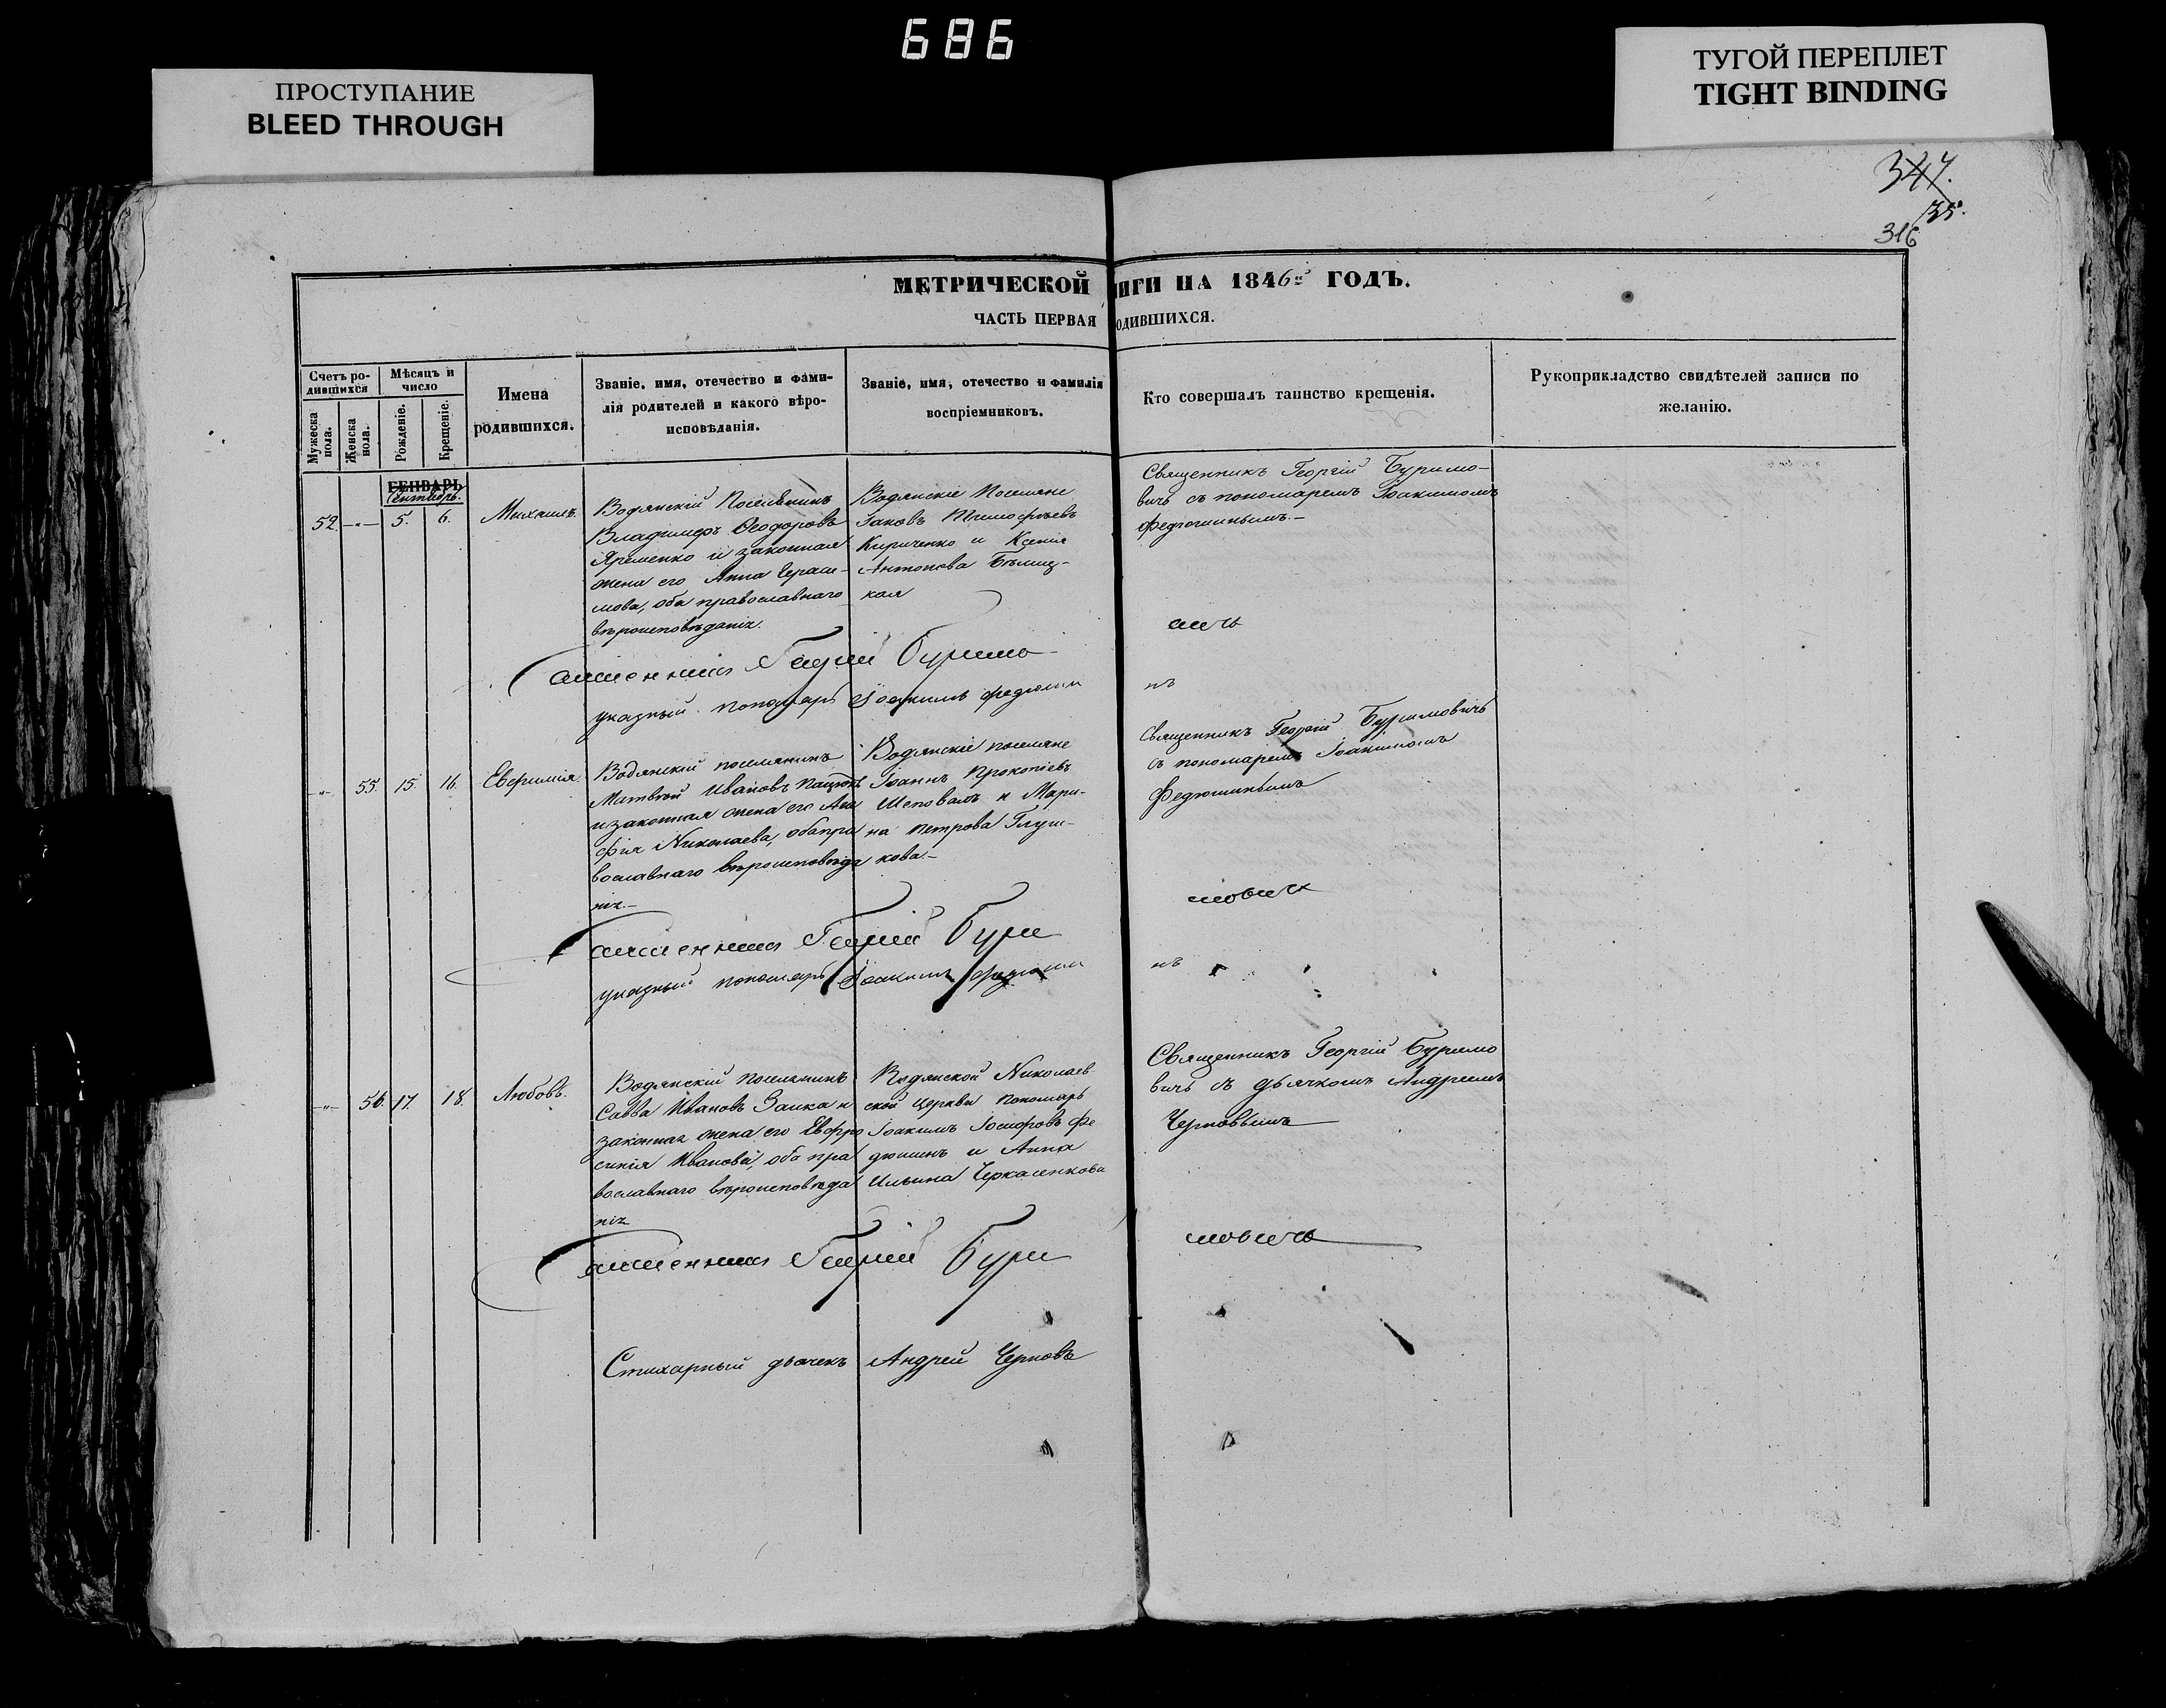 686
ПРОСТУПАНИЕ
BLEED THROUGH
ТУГОЙ ПЕРЕПЛЕТ
TIGHT BINDING
347.
35.
316
МЕТРИЧЕСКОЙ ИГИ НА 1846й ГОДЪ.
ЧАСТЬ ПЕРВАЯ ОДИВШИХСЯ.
Счетъ ро-
дившихся
Мужеска пола.
Женска пола.
Мѣсяцъ и
число
Рожденіе.
Крещеніе.
Имена
родившихся.
Званіе, имя, отечество и фами-
лія родителей и какого вѣро-
исповѣданія.
Званіе, имя, отечество и фамилія
воспріемниковъ.
Кто совершалъ таинство крещенія.
Рукоприкладство свидѣтелей записи по
желанію.
ГЕНВАРЬ
Сентябрь.
52 -„- 5. 6. Михаилъ.
Водянскій Поселянинъ
Владимеръ Ѳеодоровъ
Яременко и законная
жена его Анна Гераси-
мова, оба православнаго
вѣроисповѣданія.
Водянскіе Поселяне
Іаковъ Тимофѣевъ
Кириченко и Ксенія
Антонова Бѣлиц-
кая
Священникъ Георгій Буримо-
вичъ съ пономаремъ Іоакимомъ
Федюшинымъ.-
Священникъ Георгій Буримо-
вичъ
указный пономарь Іоакимъ Федюши
нъ
-„- 55. 15. 16. Евфимія.
Водянскій поселянинъ
Матвѣй Ивановъ Пацюкъ
и законная жена его Ага
фія Николаева, оба пра
вославнаго вѣроисповѣда
нія.-
Водянскіе поселяне
Іоаннъ Прокопіевъ
Шеповалъ и Мари-
на Петрова Глуш-
кова.-
Священникъ Георгій Буримовичъ
съ пономаремъ Іоакимомъ
Федюшинымъ
Священникъ Георгій Бури
мовичъ
указный пономарь Іоакимъ Федюши
нъ
-„- 56. 17. 18. Любовь.
Водянскій поселянинъ
Савва Ивановъ Заика и
законная жена его Евфро
синія Иванова, оба пра
вославнаго вѣроисповѣда
нія
Водянской Николаев
ской церкви пономарь
Іоакимъ Іосифовъ Фе
дюшинъ и Анна
Ильина Черкасенкова
Священникъ Георгій Буримо
вичъ съ дьячкомъ Андреемъ
Черновымъ
Священникъ Георгій Бури
мовичъ
Стихарный дьячекъ Андрей Черновъ